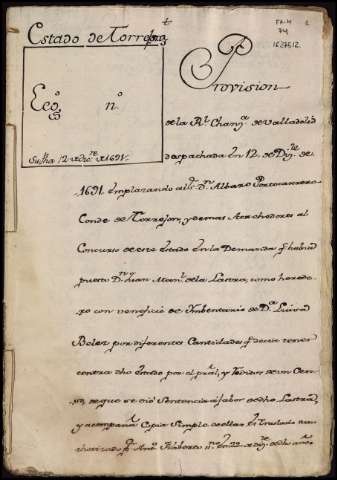 t
Estado de Torrejon
Leg.º n.º
Su fha 12 de Dizre de 1691.
2
Provision
de la Rl. Chanª de Valladolid
despachada en 12. de Dizre de
1691. emplazando al Sr. Dn. Albaro Portocarrero
Conde de Torrejon, y demas Acrehedores al
Concurso de este Estado en la Demanda q. havia
puesto Dn. Juan Manl. de la Lastra, como herede-
ro con veneficio de Imbentario de Dª. Luisa
Belez por diferentes Cantidades q. decia tener
contra dho Estado por el pral. y Reditos de un Cen-
so, de que se dió Sentencia a fabor de dho Lastra,
y acompaña Copia Simple de ellas